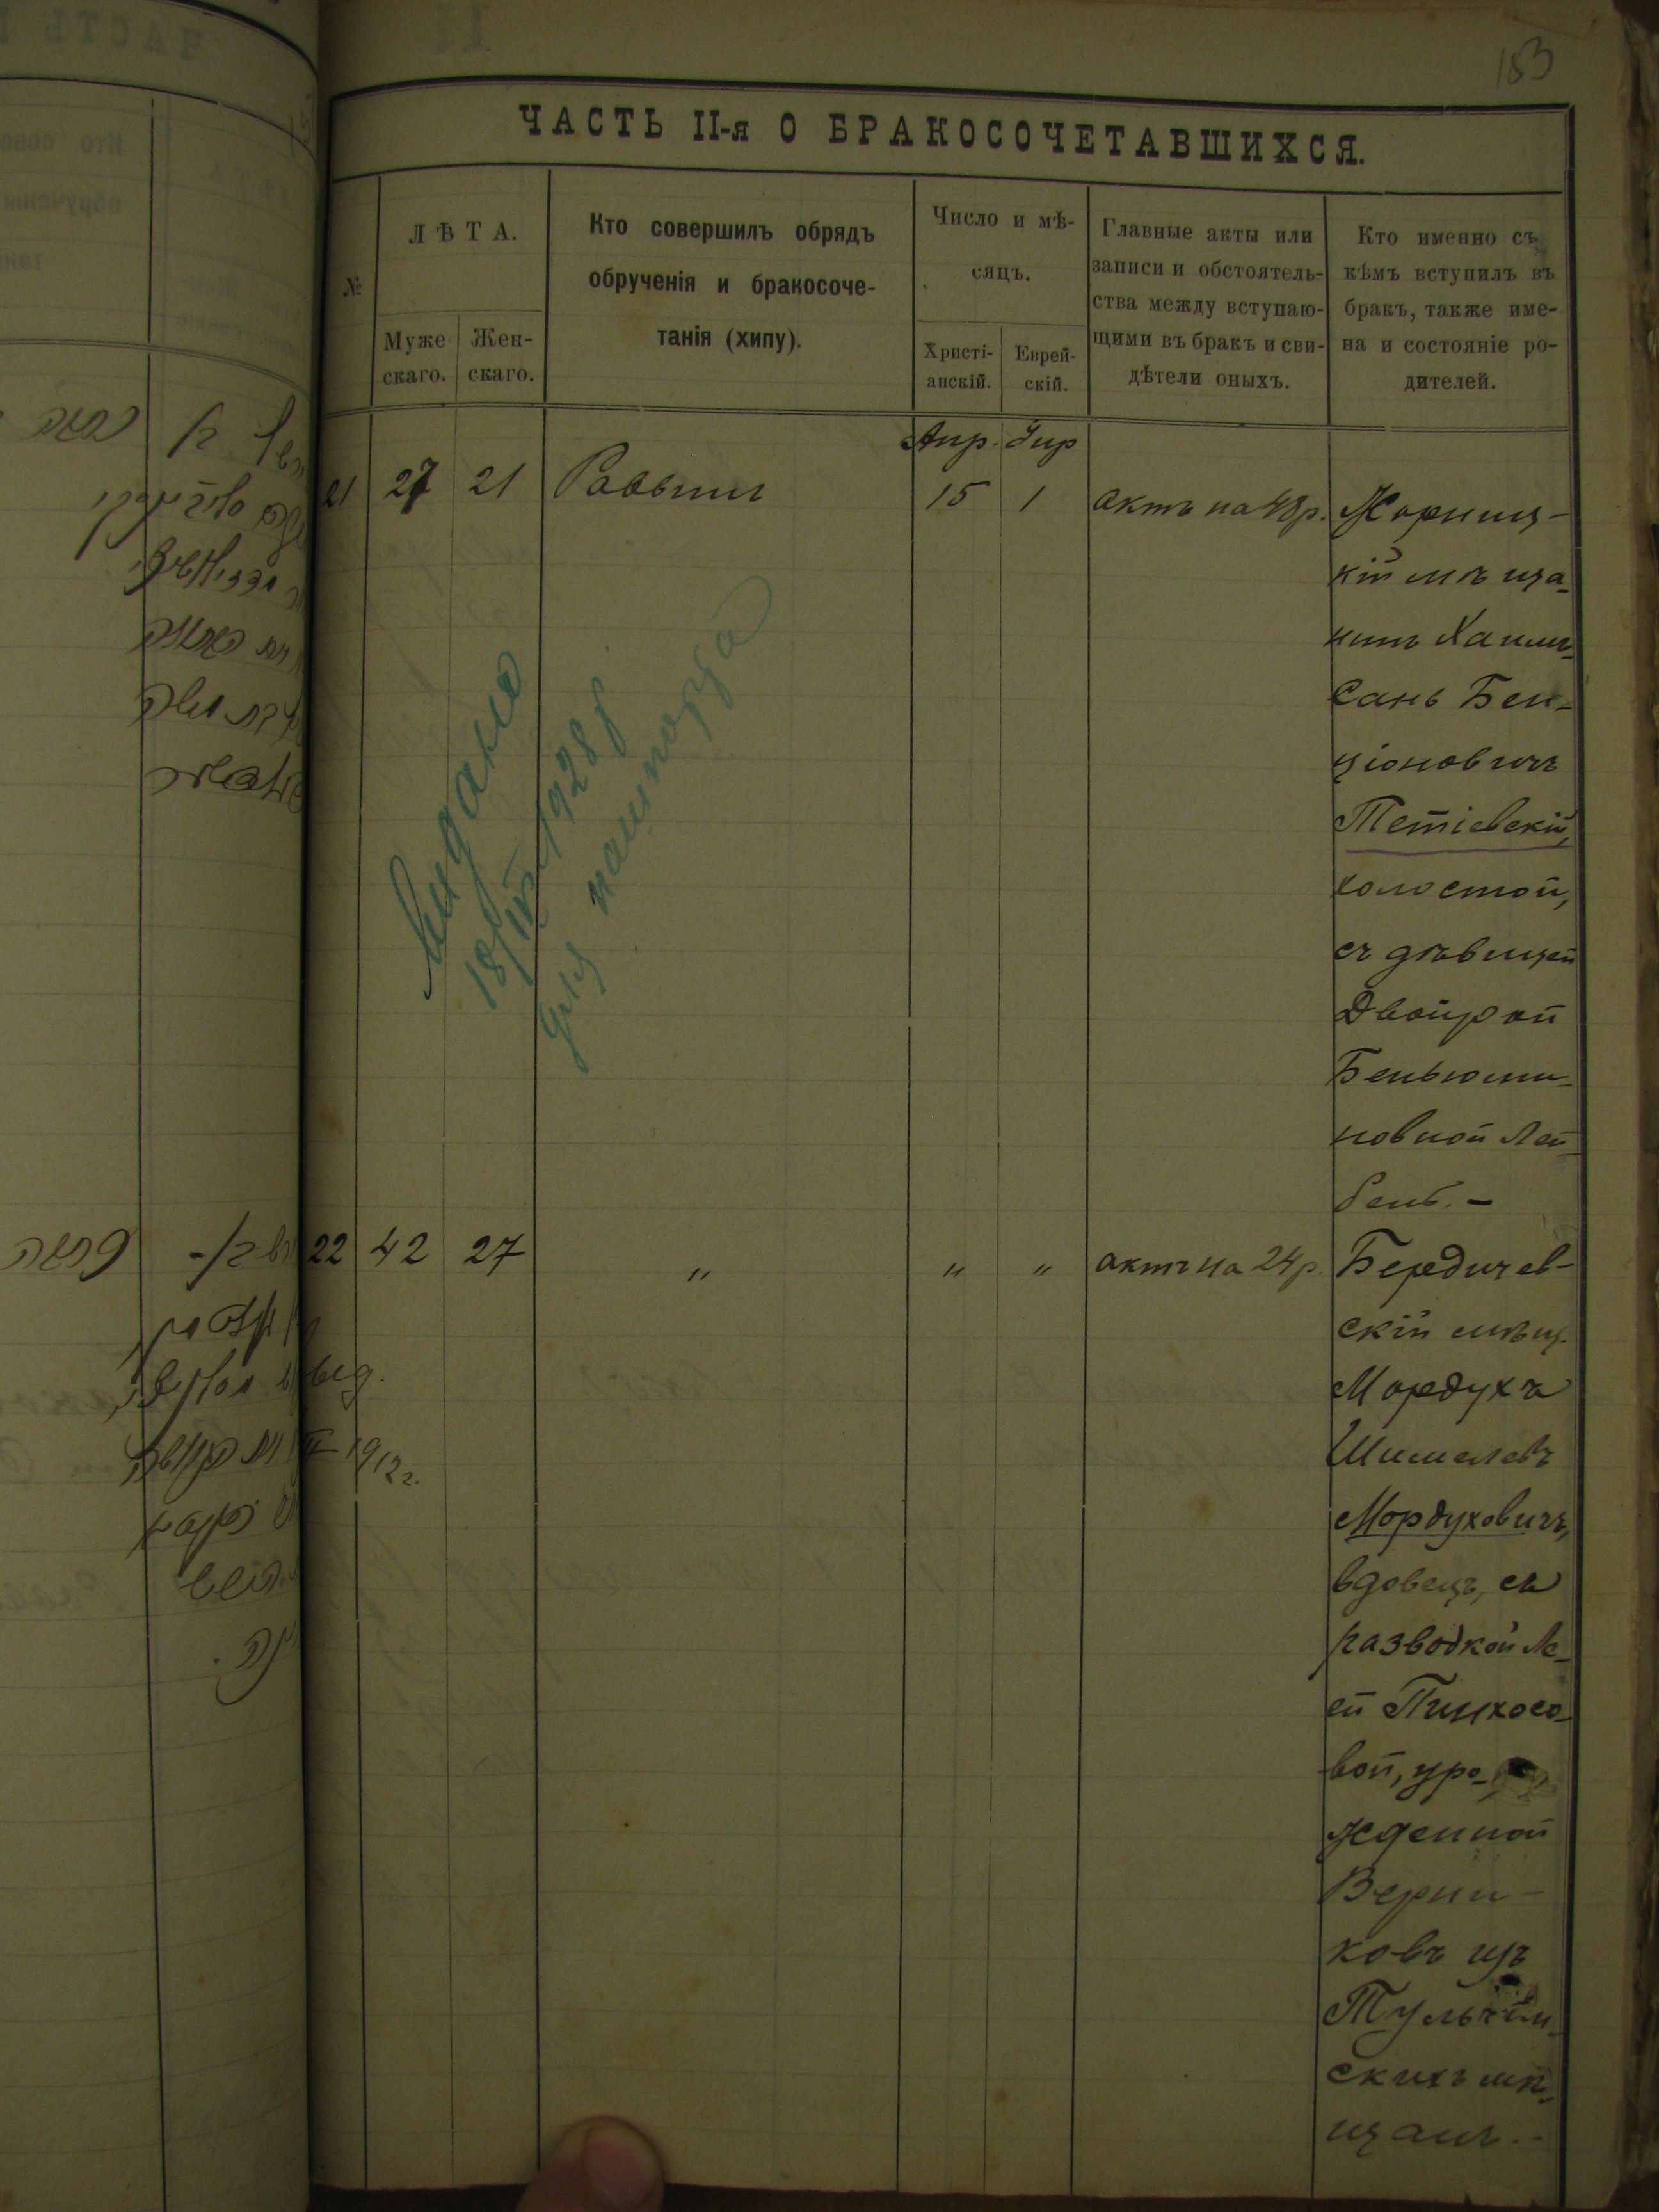 153
ЧАСТЬ II-я О БРАКОСОЧЕТАВШИХСЯ.
№
ЛѢТА.
Муже
скаго.
Жен-
скаго.
Кто совершилъ обрядъ
обрученія и бракосоче-
танія (хипу).
Число и мѣ-
сяцъ.
Христі-
анскій.
Еврей-
скій.
Главные акты или
записи и обстоятель-
ства между вступаю-
щими въ бракъ и сви-
дѣтели оныхъ.
Кто именно съ
кѣмъ вступилъ въ
бракъ, также име-
на и состояніе ро-
дителей.
Апр. Іир
21 27 21 Раввинъ 15 1 актъ на 48 р.
Корниц-
кій мѣща-
нинъ Хаим-
Сань Бен-
ціоновичъ
Тетіевскій,
холостой,
съ дѣвицей
Двойрой
Беньюми-
новной Лей-
бенб. -
Видано
18/IV 1928 р
для пашпорта
22 42 27 " " " актъ на 24 р.
Бердичев-
скій мѣщ.
Мордухъ
Шимелевъ
Мордуховичъ,
вдовецъ, съ
разводкой Ле-
ей Пинхосо-
вой, уро-
жденной
Верни-
ковъ изъ
Тульчин-
скихъ мѣ-
щанъ. -
выд.
1912 г.